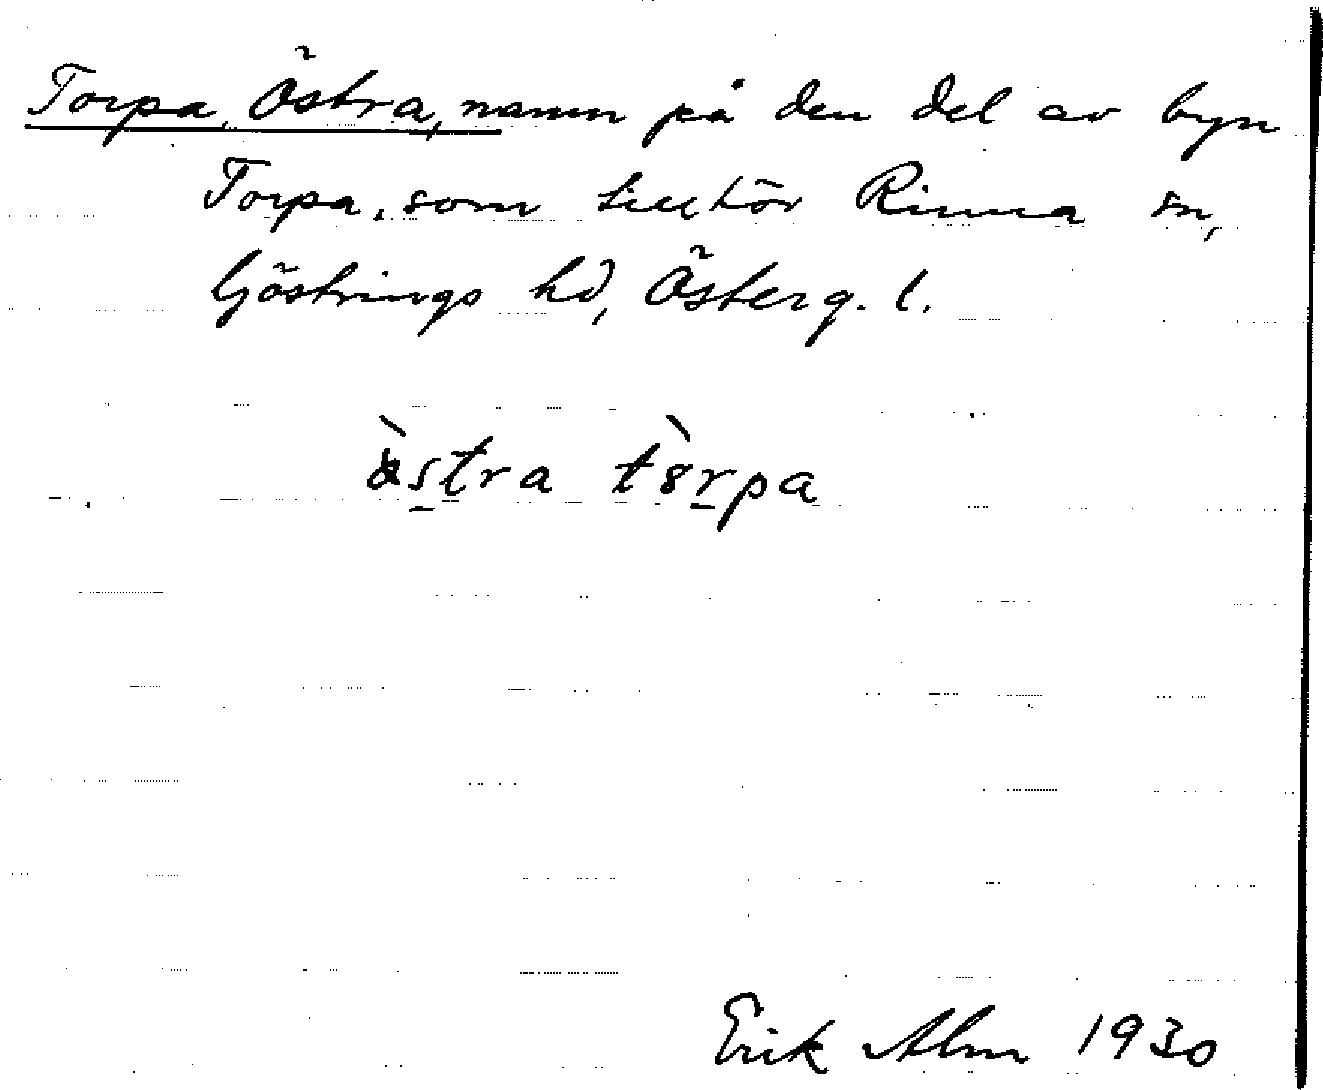 Torpa, Östra, namn på den del av byn
Torpa, som tillhör Rinna sn,
Göstrings hd, Österg. l.
tòrpa
Erik Alm 1930